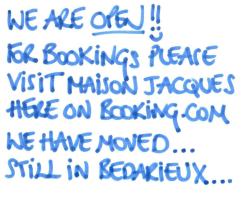 WE ARE OPEN!!
FOR BOOKINGS PLEASE
VISIT MAISON JACQUES
HERE ON BOOKING.COM
WE HAVE MOVED...
STILL IN BEDARIEUX....